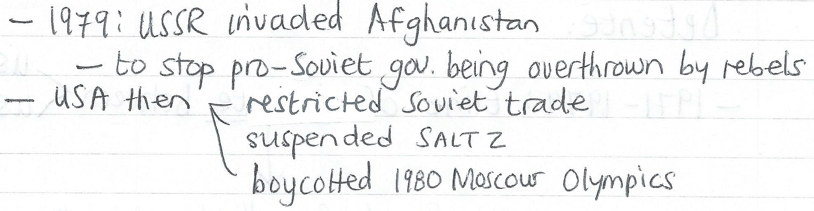 - 1979: USSR invaded Afghanistan
- to stop pro-Soviet gov. being overthrown by rebels
- USA then restricted Soviet trade
suspended SALT 2
boycotted 1980 Moscow Olympics